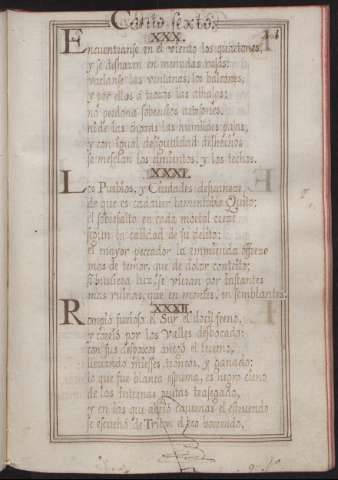 Canto sexto.
XXX.
Encuentranse en el viento los
y se deshazen en menudas rajas;
vuelanse las ventanas, los balcones,
y por ellos á trozos las alhajas;
no perdona sobervios
ni de las chozas las humildes pajas,
y con igual desigualdad deshechos
se mesclan los cimientos, y los techos.
XXXI.
Los Pueblos, y Ciudades
de que es cadaver lamentable Quito;
el sobresalto en cada mortal crece
segun la calidad de su delito;
el mayor peccador la enmienda ofrece
mas de temor, que de dolor contrito;
si huviera luz, se vieran por instantes
mas ruinas, que en montes, en semblantes.
XXXII.
Rompió furioso el Sur el docil freno,
y corrió por los Valles desbocado;
con sus despojos anegó el terreno,
llevando miesses, troncos, y ganado;
lo que fue blanca espuma, es negro cieno
de las internas grutas
y en las que abrió cavernas el estruendo
se escuchó de Triton el eco horrendo.